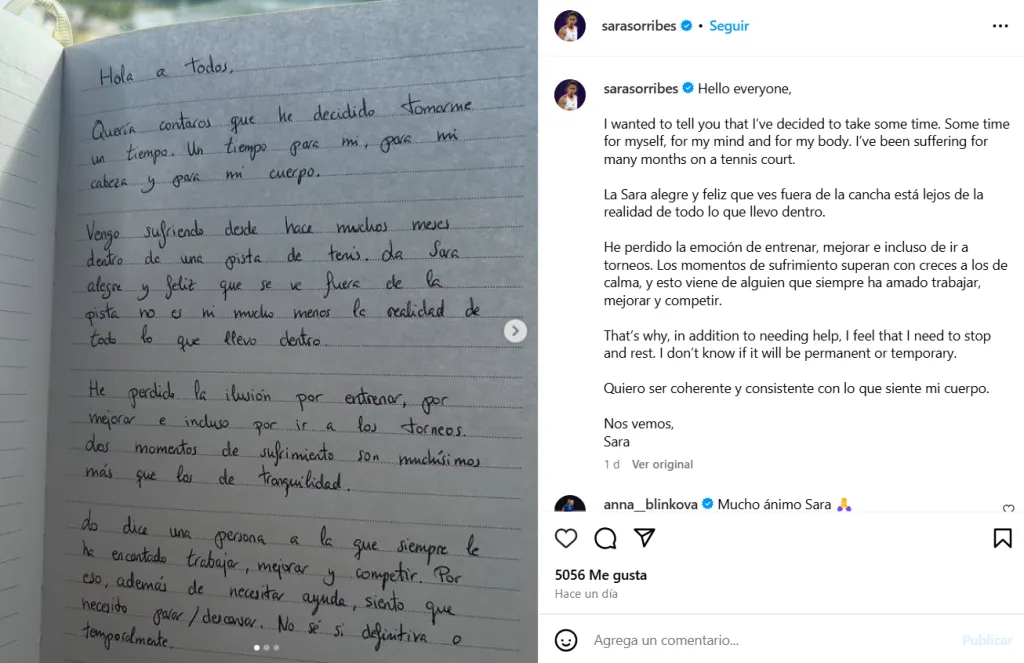 Hola a todos,
Quería contaros que he decidido tomarme
un tiempo. Un tiempo para mi, para mi
cabeza y para mi cuerpo.
Vengo sufriendo desde hace muchos meses
dentro de una pista de tenis. La Sara
alegre y feliz que se ve fuera de la
pista no es ni mucho menos la realidad de
todo lo que llevo dentro.
He perdido la ilusión por entrenar, por
mejorar e incluso por ir a los torneos.
Los momentos de sufrimiento son muchísimos
más que los de tranquilidad.
Lo dice una persona a la que siempre le
ha encantado trabajar, mejorar y competir. Por
eso, además de necesitar ayuda, siento que
necesito parar/descansar. No sé si definitiva o
temporalmente.
sarasorribes • Seguir
sarasorribes Hello everyone,
I wanted to tell you that I've decided to take some time. Some time
for myself, for my mind and for my body. I've been suffering for
many months on a tennis court.
La Sara alegre y feliz que ves fuera de la cancha está lejos de la
realidad de todo lo que llevo dentro.
He perdido la emoción de entrenar, mejorar e incluso de ir a
torneos. Los momentos de sufrimiento superan con creces a los de
calma, y esto viene de alguien que siempre ha amado trabajar,
mejorar y competir.
That's why, in addition to needing help, I feel that I need to stop
and rest. I don't know if it will be permanent or temporary.
Quiero ser coherente y consistente con lo que siente mi cuerpo.
Nos vemos,
Sara
1 d Ver original
anna__blinkova Mucho ánimo Sara 🙏
5056 Me gusta
Hace un día
Agrega un comentario...
Publicar